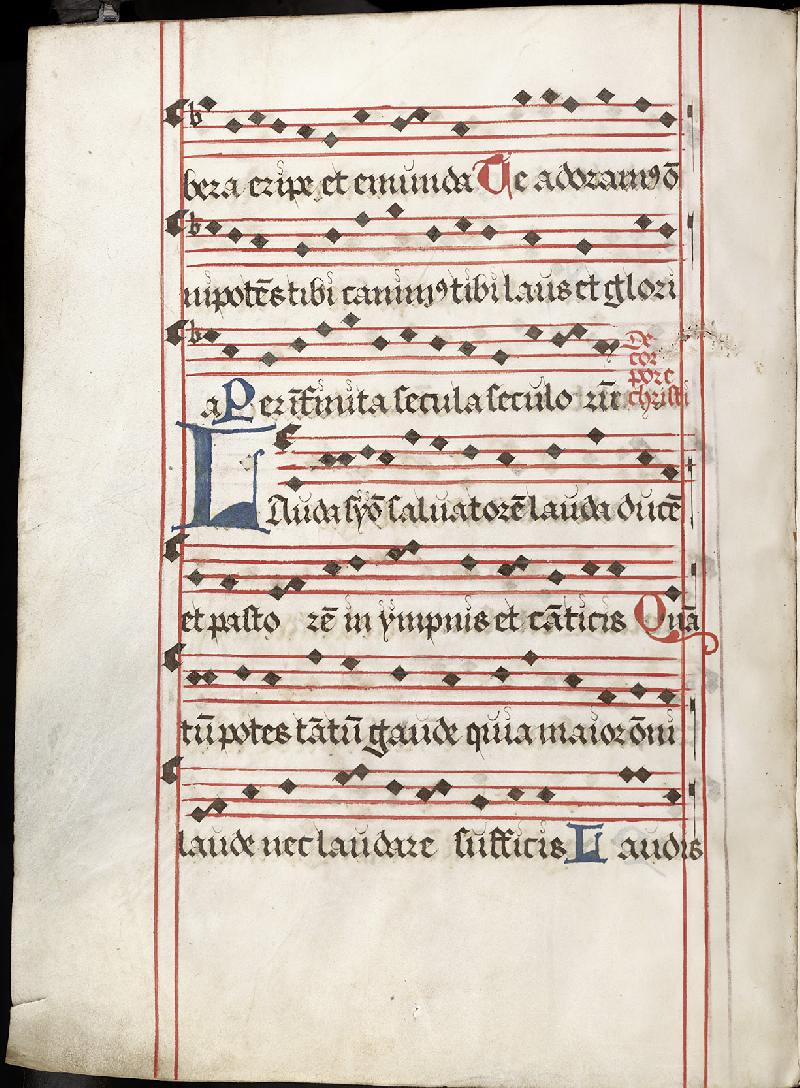 bera eripe et emunda Te adoramꝰ ō
nipotēs tibi canimꝰ tibi laus et glori
a Per īfinita secula seculo rū
De
cor
pore
christi
LAuda syō saluatorē lauda ducē
et pasto rē in ympnis et cāticis Quā
tū potes tātū gaude quia maior ōni
laude nec laudare sufficis Laudis